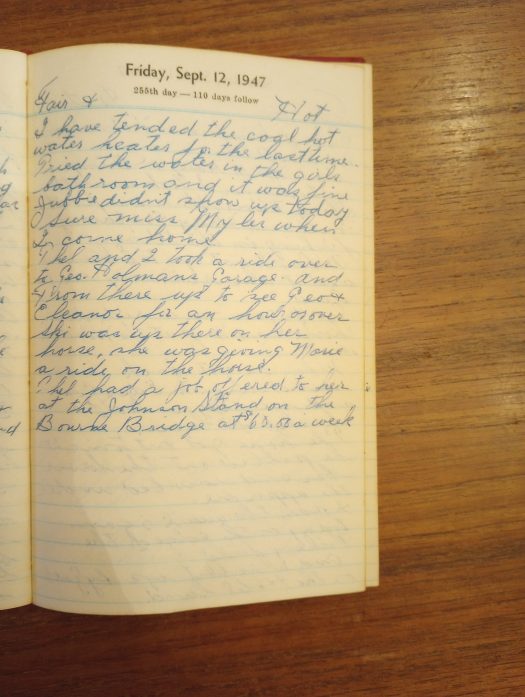 Friday, Sept. 12, 1947
255th day — 110 days follow
Fair & Hot
I have tended the coal hot
water heater for the last time.
Tried the water in the girls
bathroom and it was fine
didn't show up today
I sure miss when
I come home
Thel and I took a ride over
to Geo. Garage. And
from there up to see Geo &
Eleanor for an hour or over
Ski was up there on her
horse, she was giving Marie
a ride on the horse.
Thel had a job offered to her
at the Johnson Stand on the
Bourne Bridge at $65.00 a week